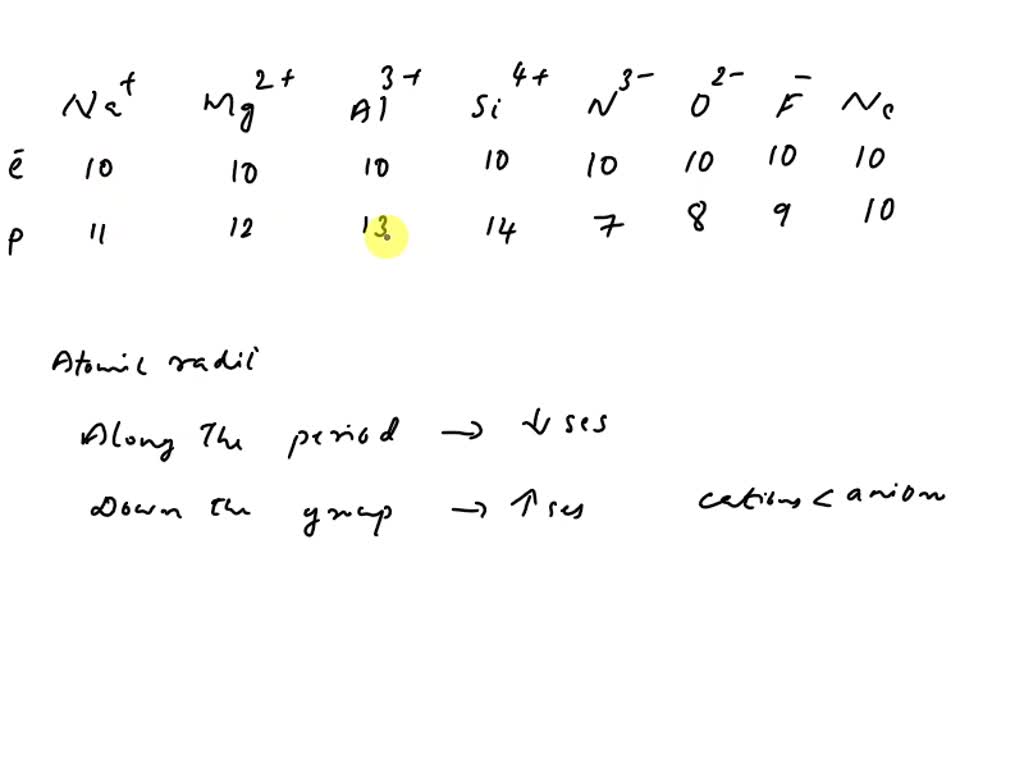 Na⁺ Mg²⁺ Al³⁺ Si⁴⁺ N³⁻ O²⁻ F⁻ Ne
ē 10 10 10 10 10 10 10 10
p 11 12 13 14 7 8 9 10
Atomic radii
Along The period → ↓ses
Down the group → ↑ses cations < anion